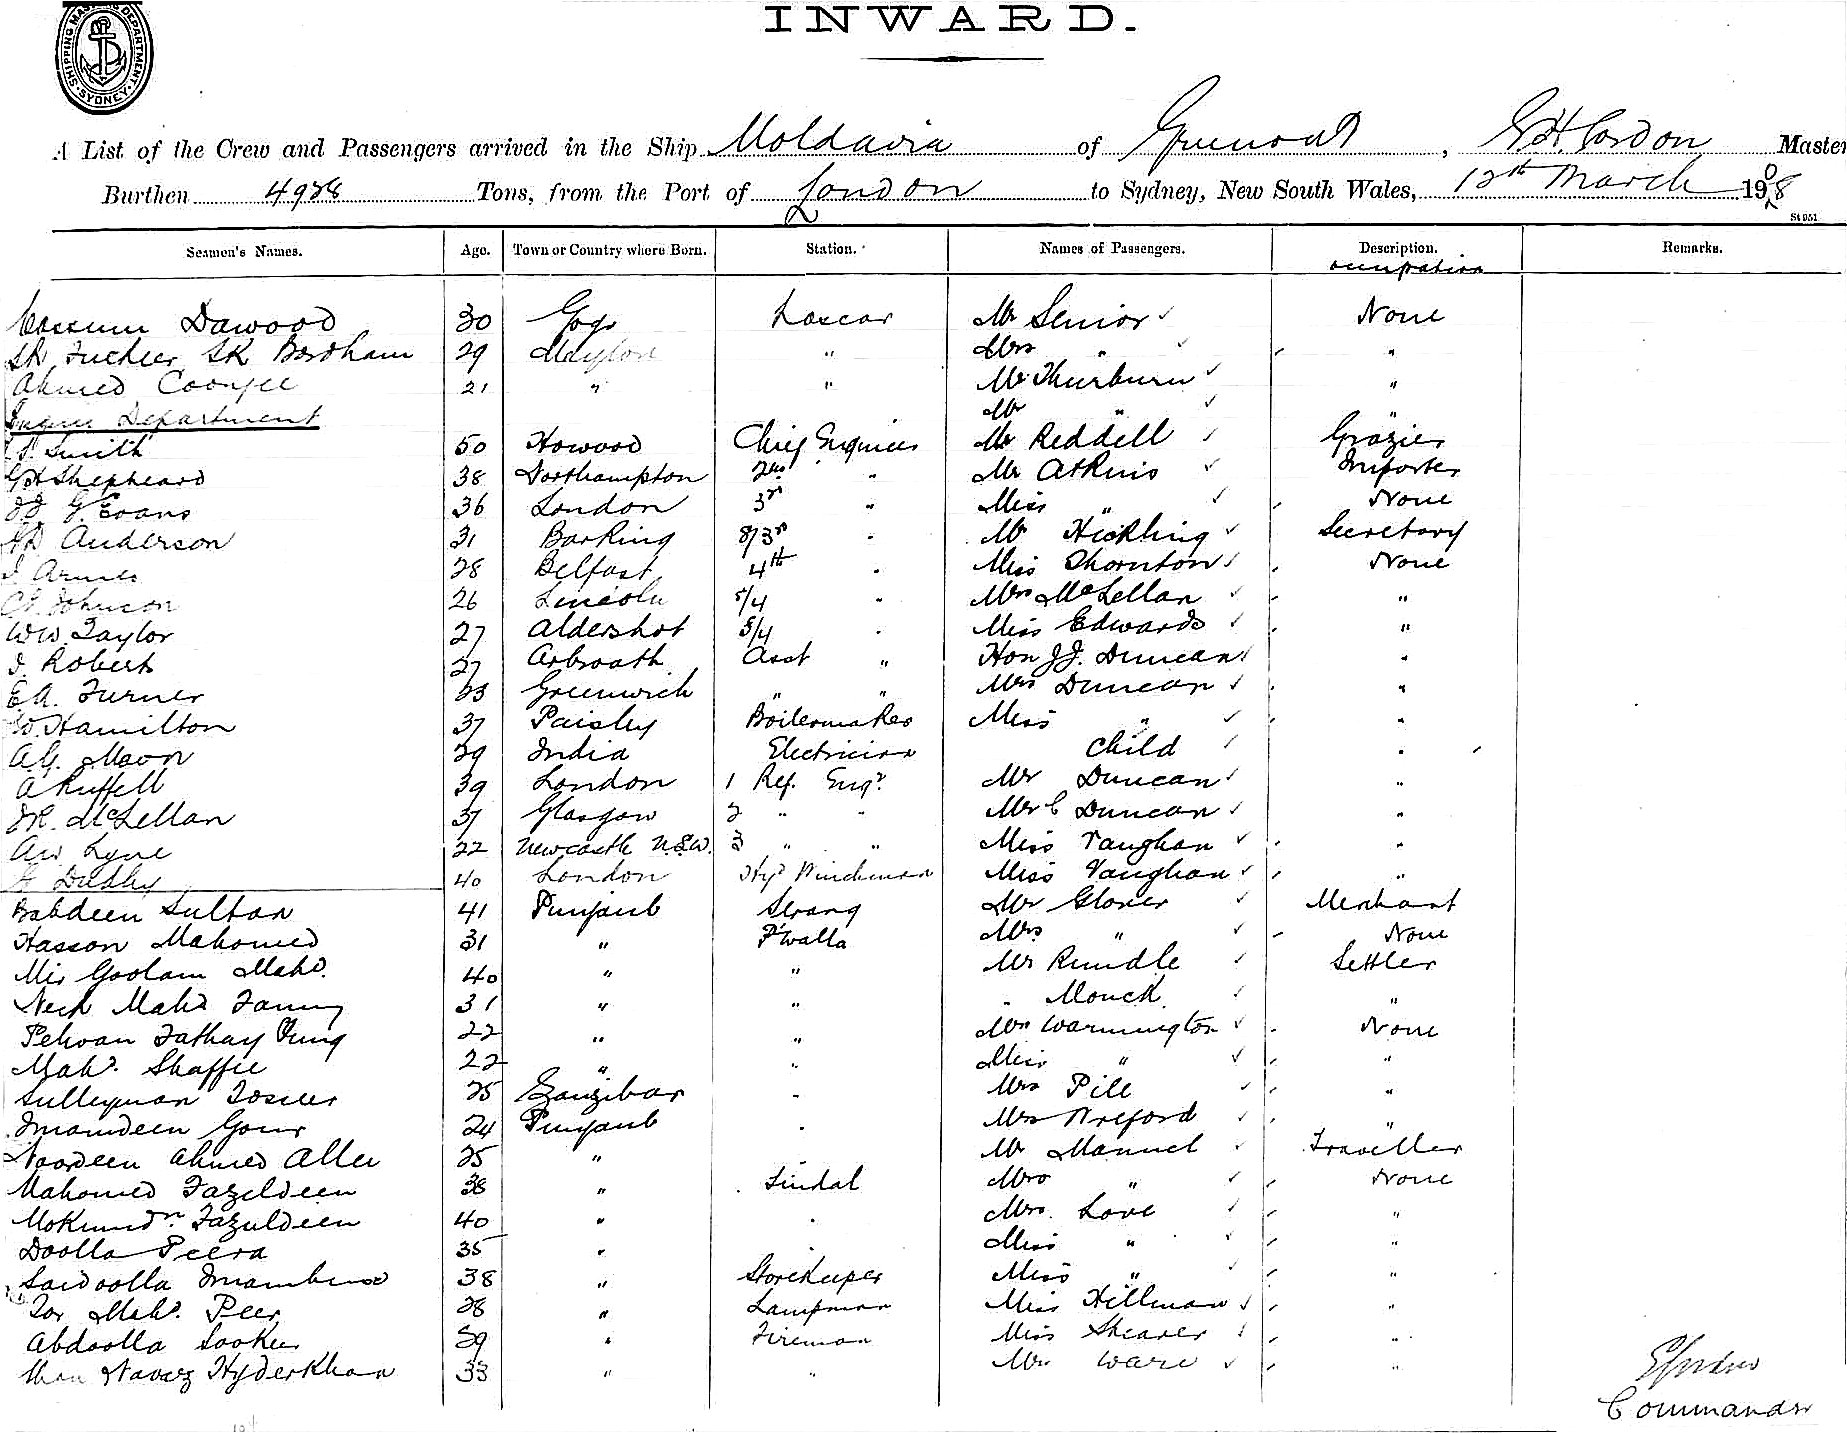 SHIPPING MASTER'S DEPARTMENT · SYDNEY ·
INWARD.
A List of the Crew and Passengers arrived in the Ship Moldavia of Greenock, Gordon Master
Burthen 4928 Tons, from the Port of London to Sydney, New South Wales, 12th March 1908
St 951
Seamen's Names. Age. Town or Country where Born. Station. Names of Passengers. Description. Remarks.
occupation
Cassum Dawood 30 Gogo Lascar Mr Senior None
29 " Mrs " "
Ahmed Coonjee 21 " " Mr Thurburn "
Department Mr " "
Smith 50 Howood Chief Engineer Mr Reddell Grazier
Shepheard 38 Northampton 2nd " Mr Atkins Importer
Evans 36 London 3rd " Miss " None
Anderson 31 Barking 8/3rd " Mr Hickling Secretary
28 Belfast 4th " Miss Thornton None
Johnson 26 Lincoln 5/4 " Mrs McLellan "
WW Taylor 27 Aldershot 5/4 " Miss Edwards "
J. Robert 27 Arbroath Asst " Hon J.J. Duncan "
E.A. Turner 23 Greenwich " " Mrs Duncan "
W. Hamilton 37 Paisley Boilermaker Miss " "
A.G. Moon 29 India Electrician Child "
A Ruffell 39 London 1 Ref. Engr Mr Duncan "
J.R. McLellan 37 Glasgow 2 " " Mr C Duncan "
AW Lyne 22 Newcastle N.S.W. 3 " " Miss Vaughan "
Dudley 40 London Hyd Winchman Miss Vaughan "
Babdeen Sultan 41 Punjaub Serang Mr Glover Merchant
Hasson Mahomed 31 " P'walla Mrs " None
Mir Goolam Mahd. 40 " " Mr Rundle Settler
Neck Mahd 31 " " " Monck "
Pelwan Fathay 22 " " Mrs Warmington None
Mahd. Shaffie 22 " " Miss " "
Sulleyman 25 Zanzibar " Mrs Pill "
Imamdeen 24 Punjaub " Mrs Wreford "
Noordeen Ahmed Allee 25 " Mr Manuel Traveller
Mahomed Fazeldeen 38 " Tindal Mrs " None
Fazuldeen 40 " " Mrs. Love "
Doolla Peera 35 " " Miss " "
Saidoolla 38 " Storekeeper Miss " "
Mahd. Peer 28 " Lampman Miss Hillman "
Abdoolla 39 " Fireman Miss Shearer "
Hyderkhan 33 " " Ware "
Commander